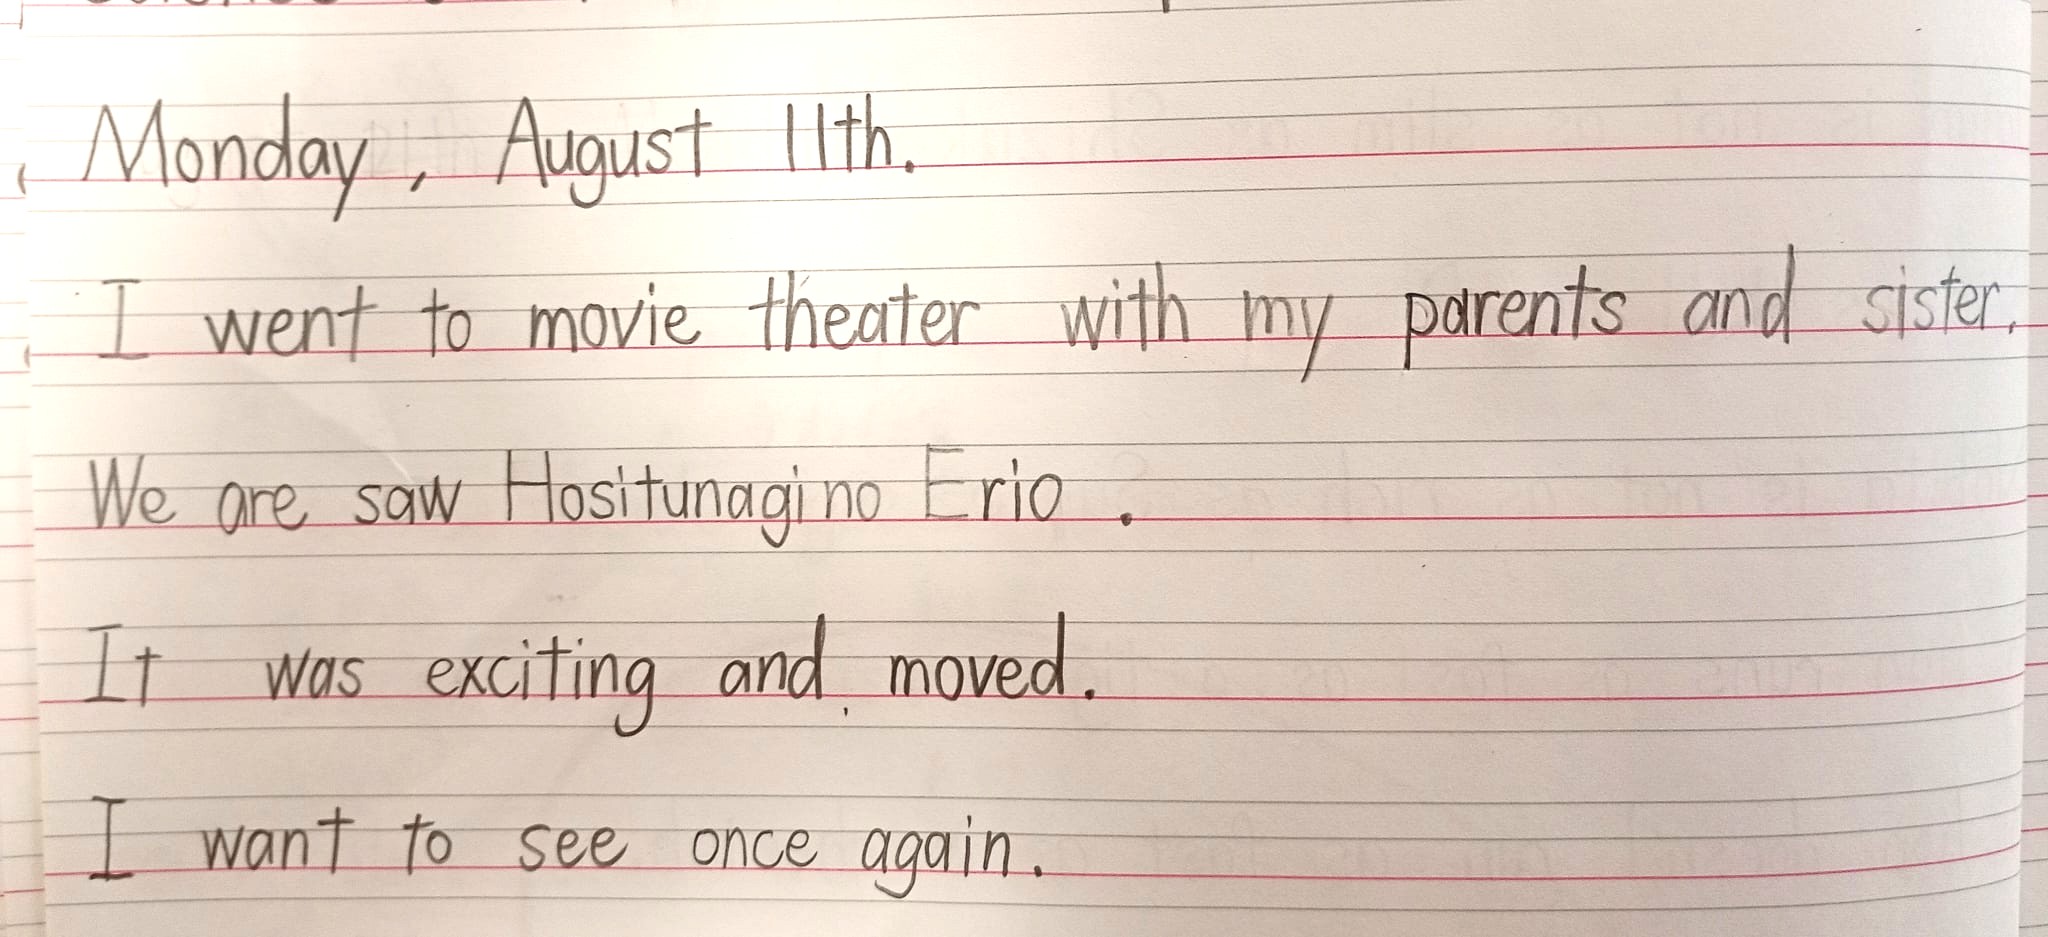 Monday, August 11th.
I went to movie theater with my parents and sister.
We are saw Hositunagi no Erio.
It was exciting and moved.
I want to see once again.